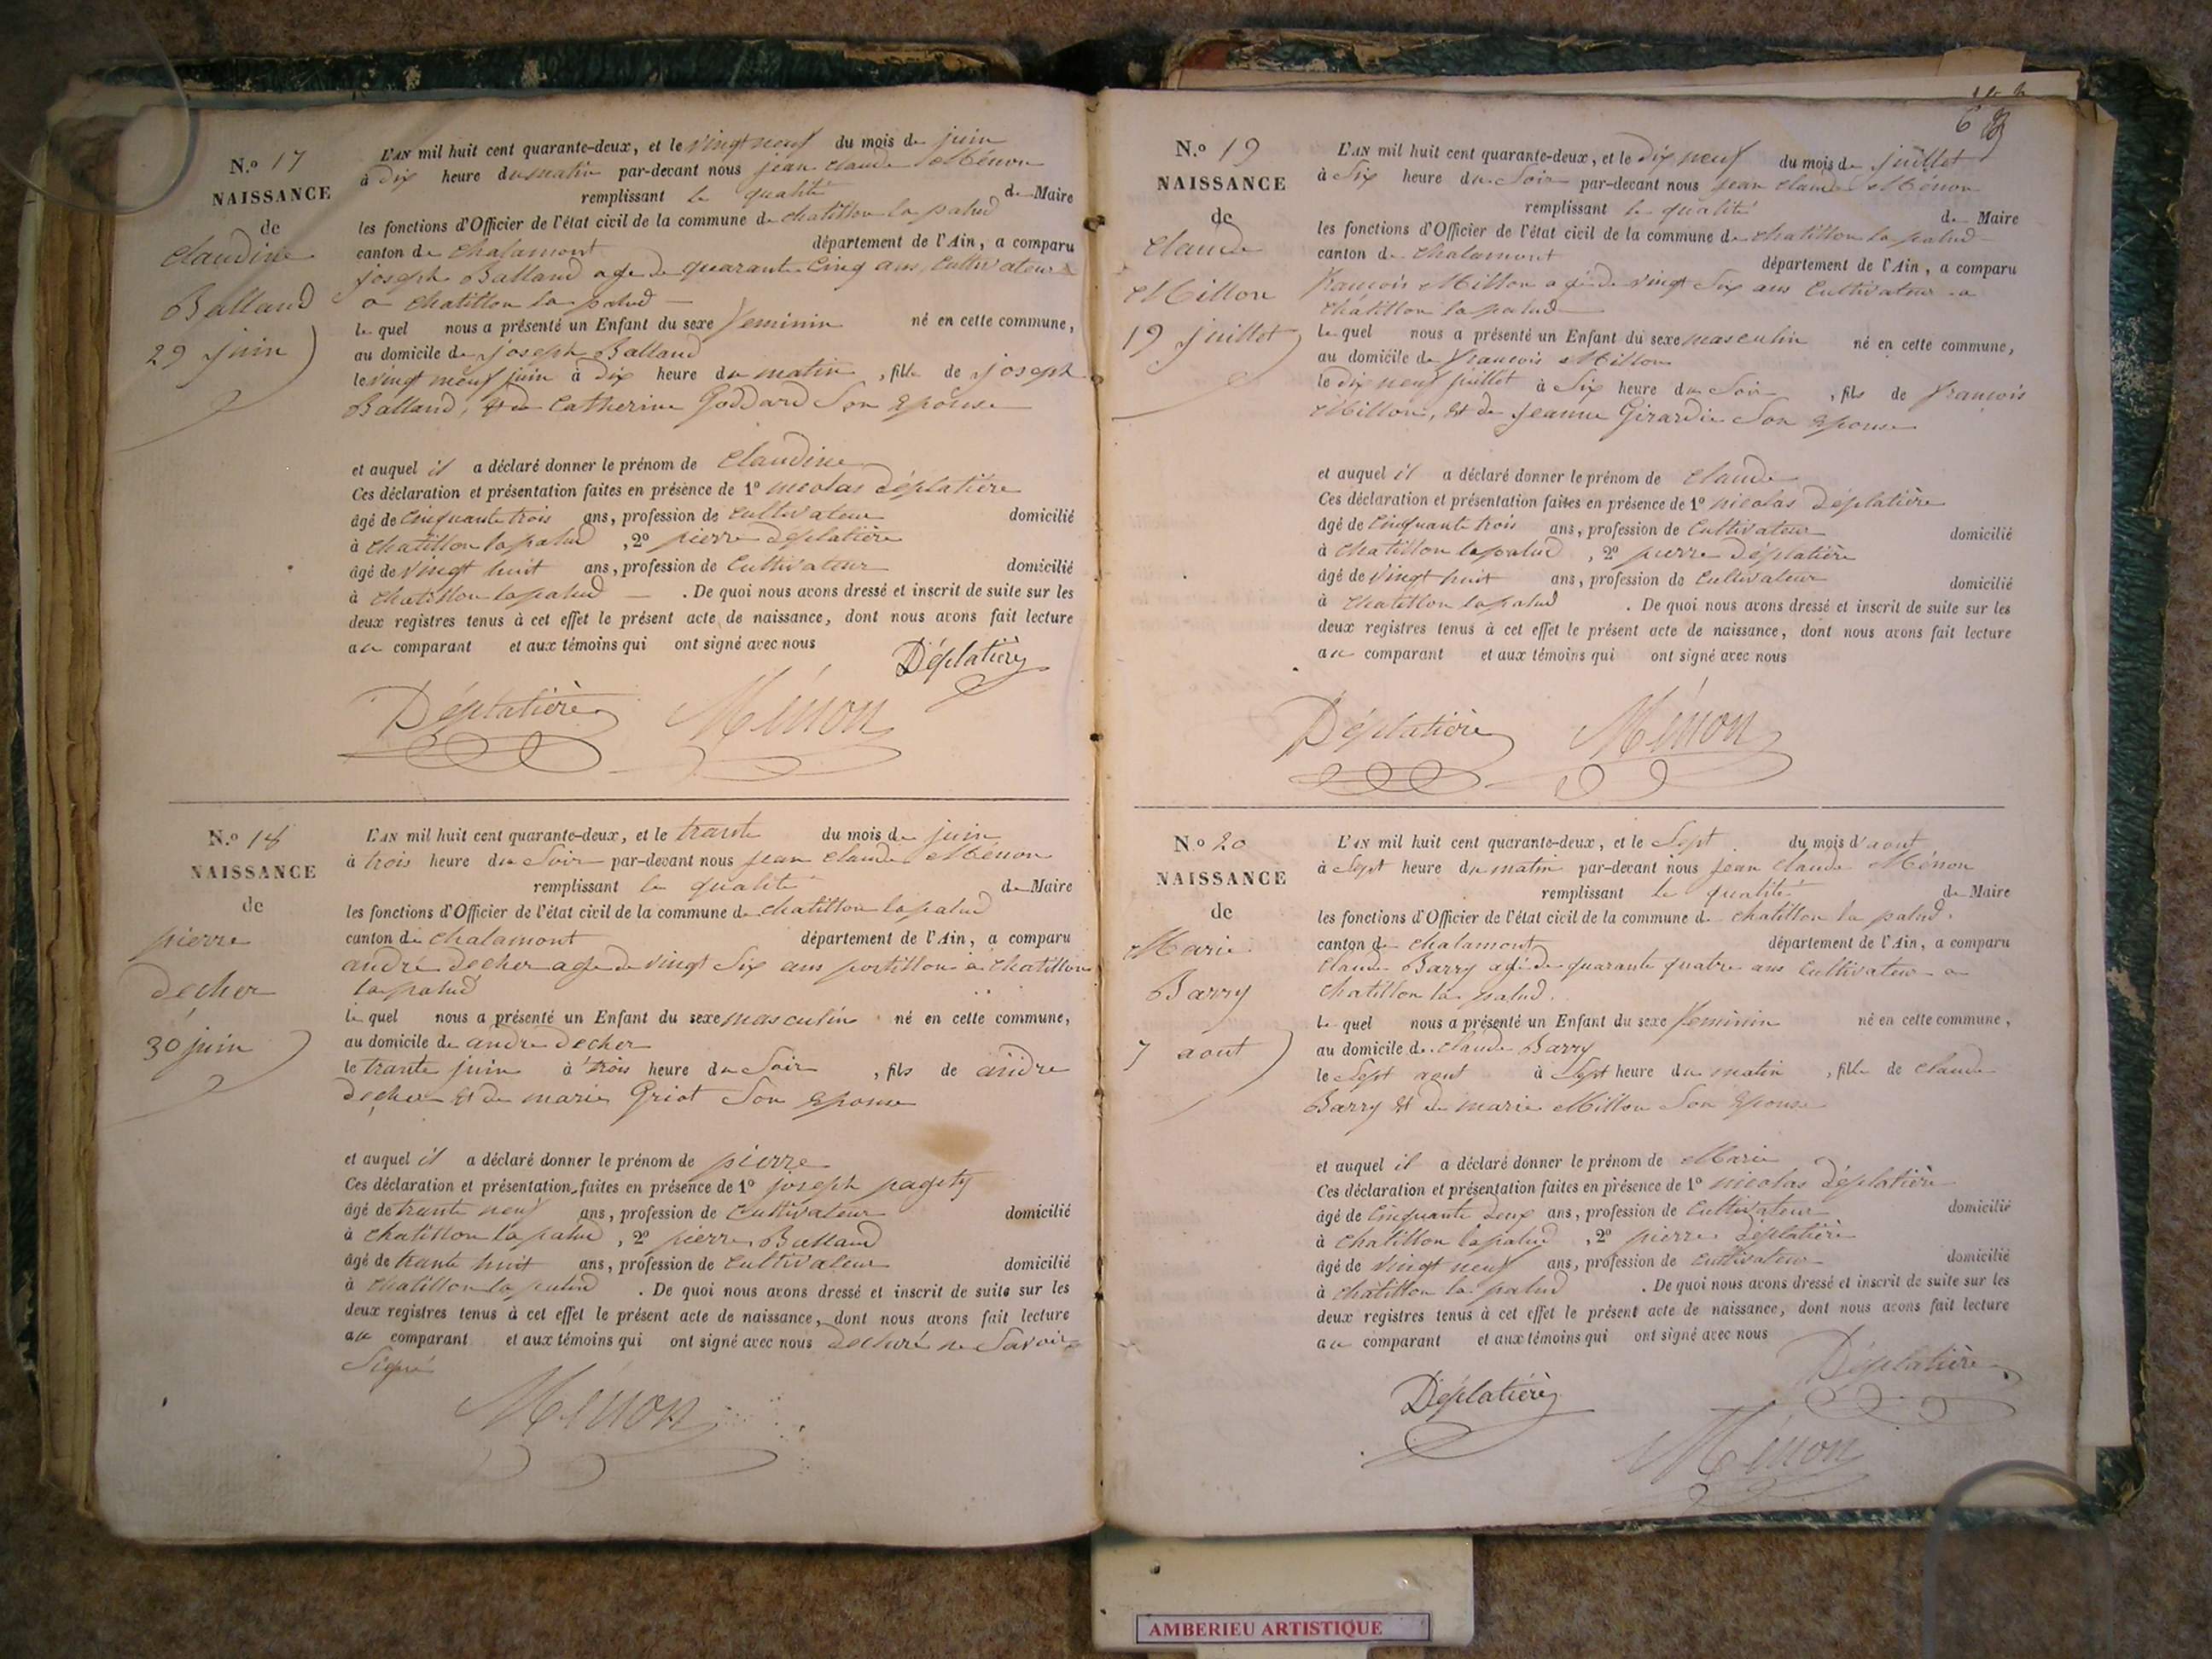 N.o 17
NAISSANCE
de
claudine
Balland
29 juin
L'AN mil huit cent quarante-deux, et le vingt neuf du mois de juin
à dix heure du matin par-devant nous jean claude Ménon
remplissant la qualité de Maire
les fonctions d'Officier de l'état civil de la commune de chatillon la palud
canton de chalamont département de l'Ain, a comparu
joseph Balland age de quarante Cinq ans, Cultivateur
a chatillon la palud
le quel nous a présenté un Enfant du sexe feminin né en cette commune,
au domicile de joseph Balland
le vingt neuf juin à dix heure du matin, fille de joseph
Balland, et de Catherine Goddard Son Epouse
et auquel il a déclaré donner le prénom de Claudine
Ces déclaration et présentation faites en présence de 1o nicolas déplatière
âgé de Cinquante trois ans, profession de Cultivateur domicilié
à chatillon la palud, 2o pierre déplatière
âgé de vingt huit ans, profession de Cultivateur domicilié
à chatillon la palud. De quoi nous avons dressé et inscrit de suite sur les
deux registres tenus à cet effet le présent acte de naissance, dont nous avons fait lecture
au comparant et aux témoins qui ont signé avec nous
Déplatière
Déplatière Ménon
N.o 18
NAISSANCE
de
pierre
decher
30 juin
L'AN mil huit cent quarante-deux, et le trante du mois de juin
à trois heure du Soir par-devant nous jean claude Ménon
remplissant la qualité de Maire
les fonctions d'Officier de l'état civil de la commune de chatillon la palud
canton de chalamont département de l'Ain, a comparu
andré decher age de vingt Six ans postillon a chatillon
la palud
le quel nous a présenté un Enfant du sexe masculin né en cette commune,
au domicile de andré decher
le trante juin à trois heure du Soir, fils de andre
decher et de marie Griot Son Epouse
et auquel il a déclaré donner le prénom de pierre
Ces déclaration et présentation faites en présence de 1o joseph
âgé de trante neuf ans, profession de Cultivateur domicilié
à chatillon la palud, 2o pierre Balland
âgé de trante huit ans, profession de Cultivateur domicilié
à chatillon la palud. De quoi nous avons dressé et inscrit de suite sur les
deux registres tenus à cet effet le présent acte de naissance, dont nous avons fait lecture
au comparant et aux témoins qui ont signé avec nous declaré ne Savoir
Signé
Ménon
N.o 19
NAISSANCE
de
claude
Millon
19 juillet
L'AN mil huit cent quarante-deux, et le dix neuf du mois de juillet
à Six heure du Soir par-devant nous jean claude Ménon
remplissant la qualité de Maire
les fonctions d'Officier de l'état civil de la commune de chatillon la palud
canton de chalamont département de l'Ain, a comparu
françois Millon agé de vingt Six ans Cultivateur a
chatillon la palud
le quel nous a présenté un Enfant du sexe masculin né en cette commune,
au domicile de françois Millon
le dix neuf juillet à Six heure du Soir, fils de françois
Millon, et de jeanne Girardin Son Epouse
et auquel il a déclaré donner le prénom de claude
Ces déclaration et présentation faites en présence de 1o nicolas déplatière
âgé de Cinquante trois ans, profession de Cultivateur domicilié
à chatillon la palud, 2o pierre déplatière
âgé de vingt huit ans, profession de Cultivateur domicilié
à chatillon la palud. De quoi nous avons dressé et inscrit de suite sur les
deux registres tenus à cet effet le présent acte de naissance, dont nous avons fait lecture
au comparant et aux témoins qui ont signé avec nous
Déplatière Ménon
N.o 20
NAISSANCE
de
Marie
Barry
7 aout
L'AN mil huit cent quarante-deux, et le Sept du mois d'aout
à Sept heure du matin par-devant nous jean claude Ménon
remplissant la qualité de Maire
les fonctions d'Officier de l'état civil de la commune de chatillon la palud.
canton de chalamont département de l'Ain, a comparu
claude Barry agé de quarante quatre ans Cultivateur a
chatillon la palud.
le quel nous a présenté un Enfant du sexe feminin né en cette commune,
au domicile de claude Barry
le Sept aout à Sept heure du matin, fille de claude
Barry et de marie Millon Son Epouse
et auquel il a déclaré donner le prénom de Marie
Ces déclaration et présentation faites en présence de 1o nicolas déplatière
âgé de Cinquante deux ans, profession de Cultivateur domicilié
à chatillon la palud, 2o pierre déplatière
âgé de vingt neuf ans, profession de Cultivateur domicilié
à chatillon la palud. De quoi nous avons dressé et inscrit de suite sur les
deux registres tenus à cet effet le présent acte de naissance, dont nous avons fait lecture
au comparant et aux témoins qui ont signé avec nous
Déplatière
Déplatière
Ménon
AMBERIEU ARTISTIQUE